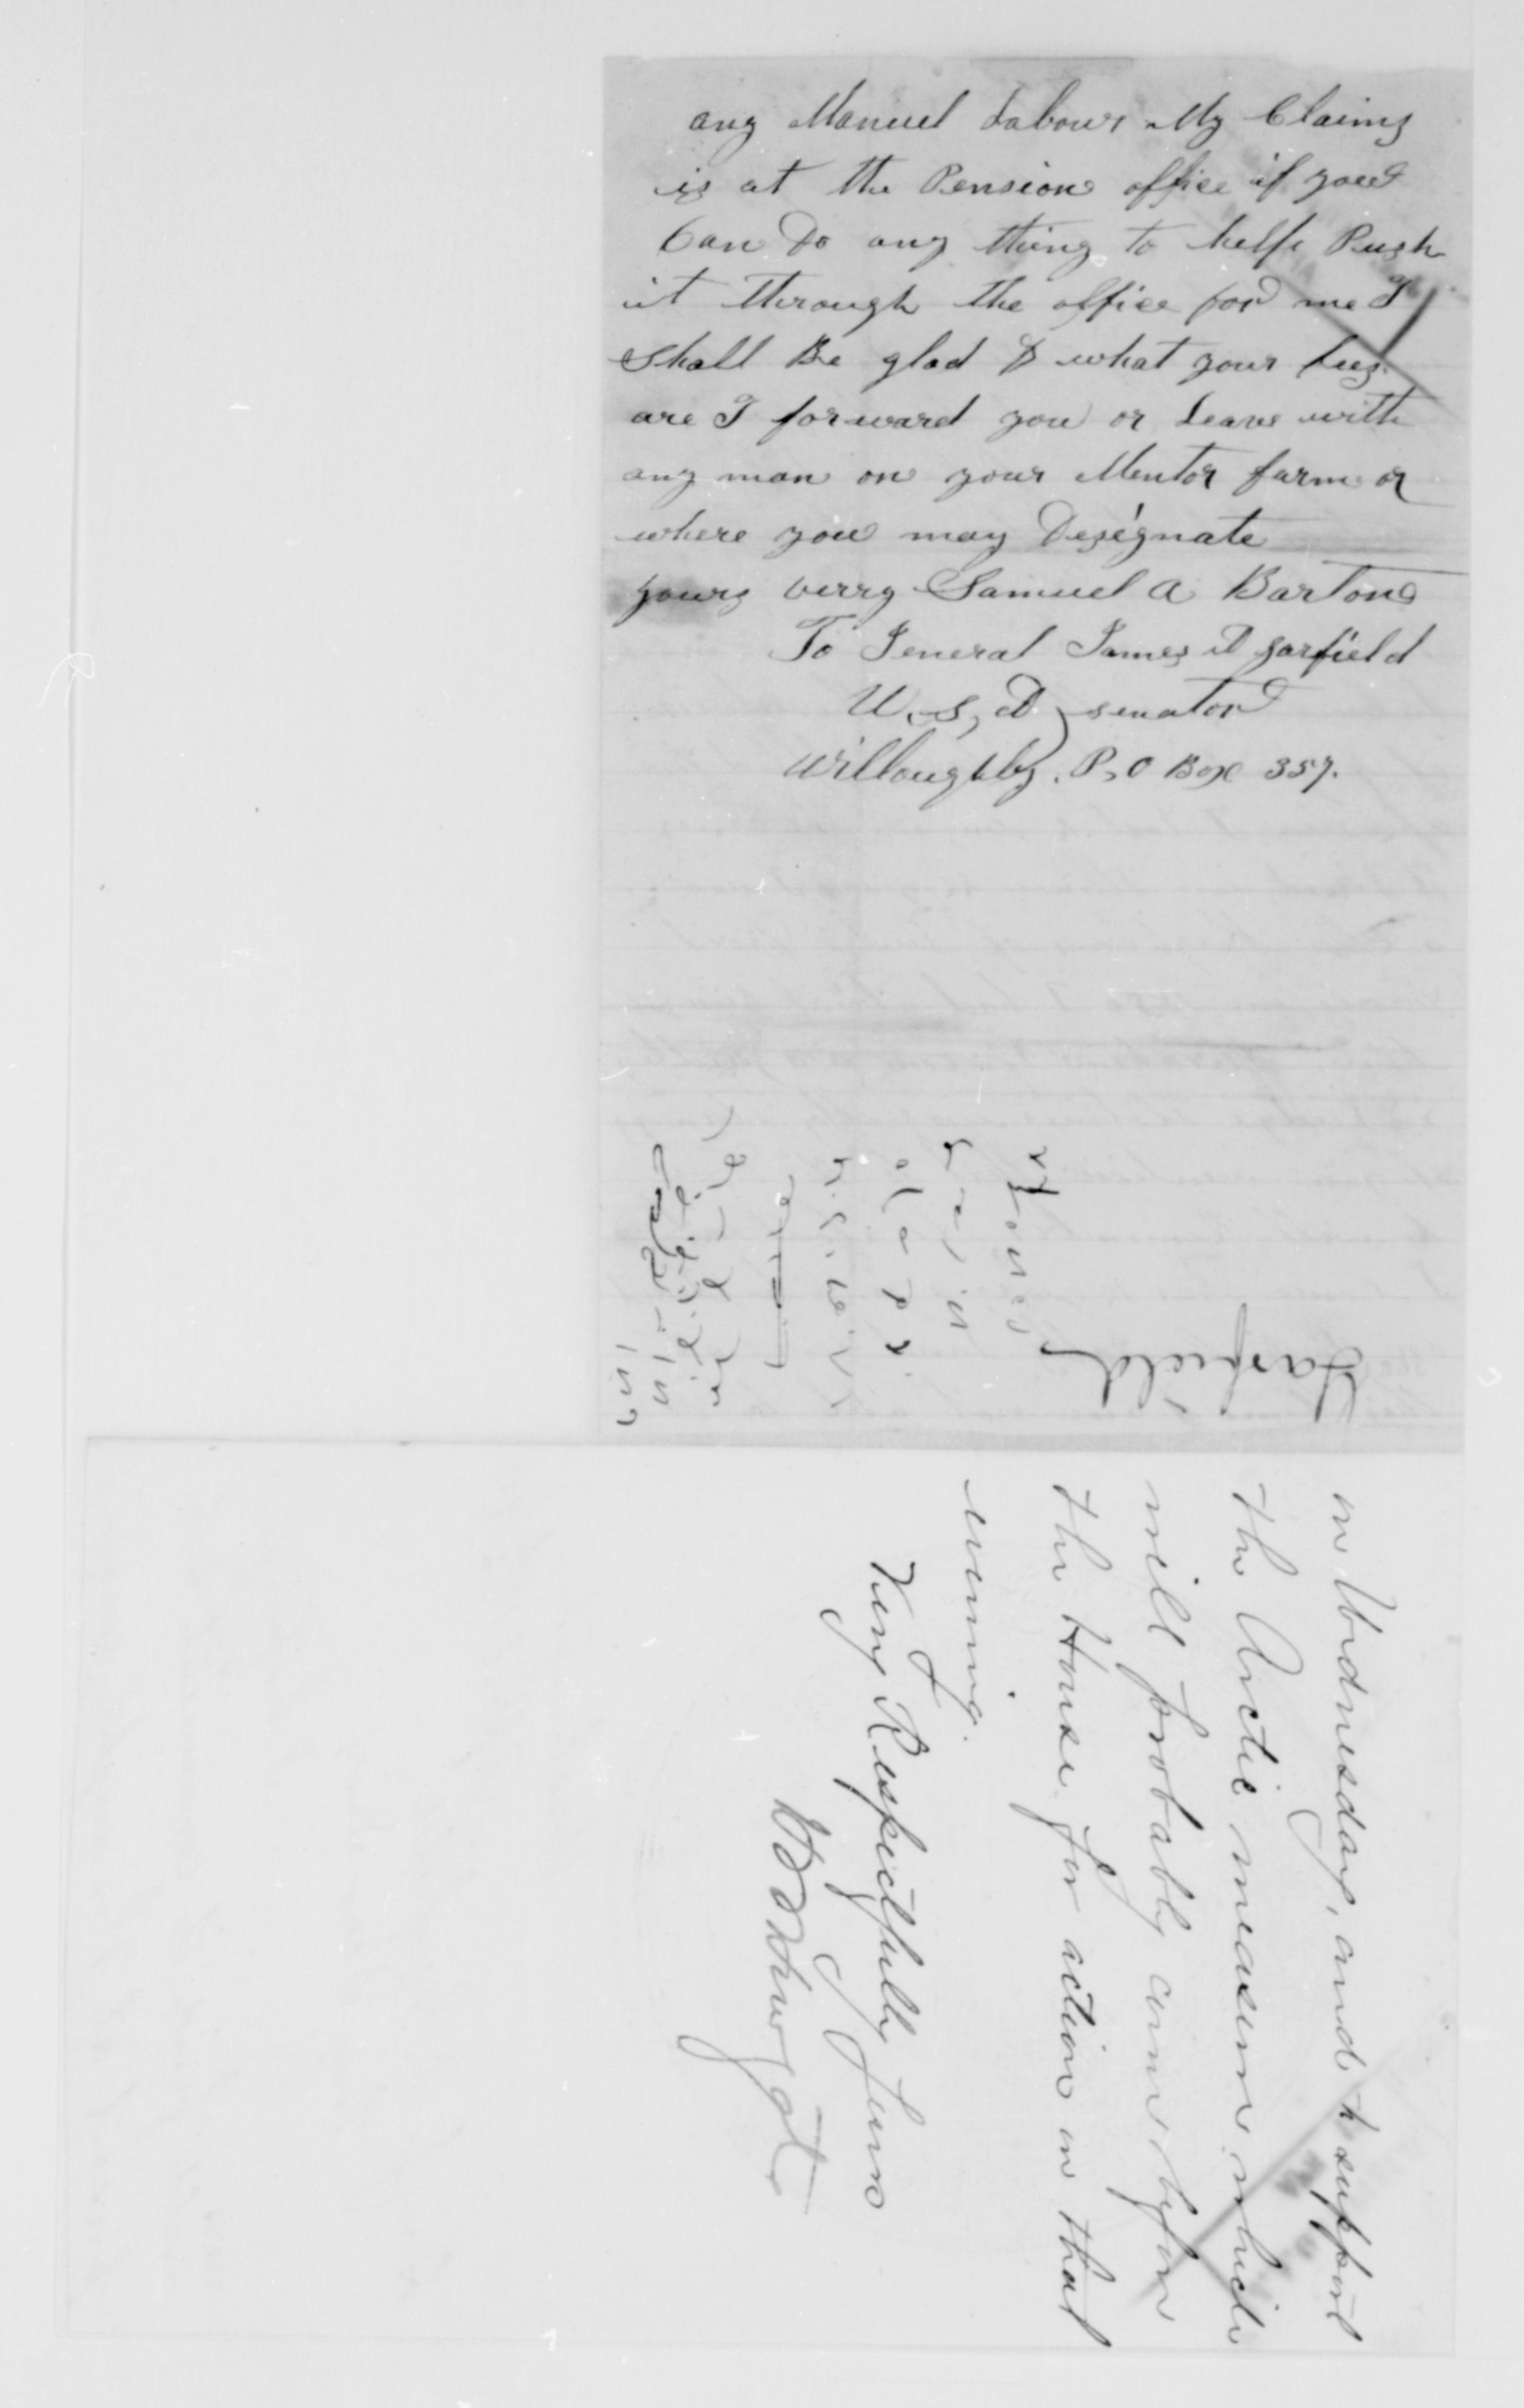 any Manuel Labour My Claims
is at the Pension office if you
Can Do any thing to help Push
it through the office for me I
shall Be glad & what your fees
are I forward you or Leave with
any man on your Mentor farm or
where you may Designate
yours verry Samuel A Barton
To General James A garfield
U, S, A senator
Willoughby. P, O Box 357.
Garfield
on Wednesday, and to support
the Arctic measure which
will probably come before
the House for action on that
evening.
Very Respectfully Yours
H. W. Howgate